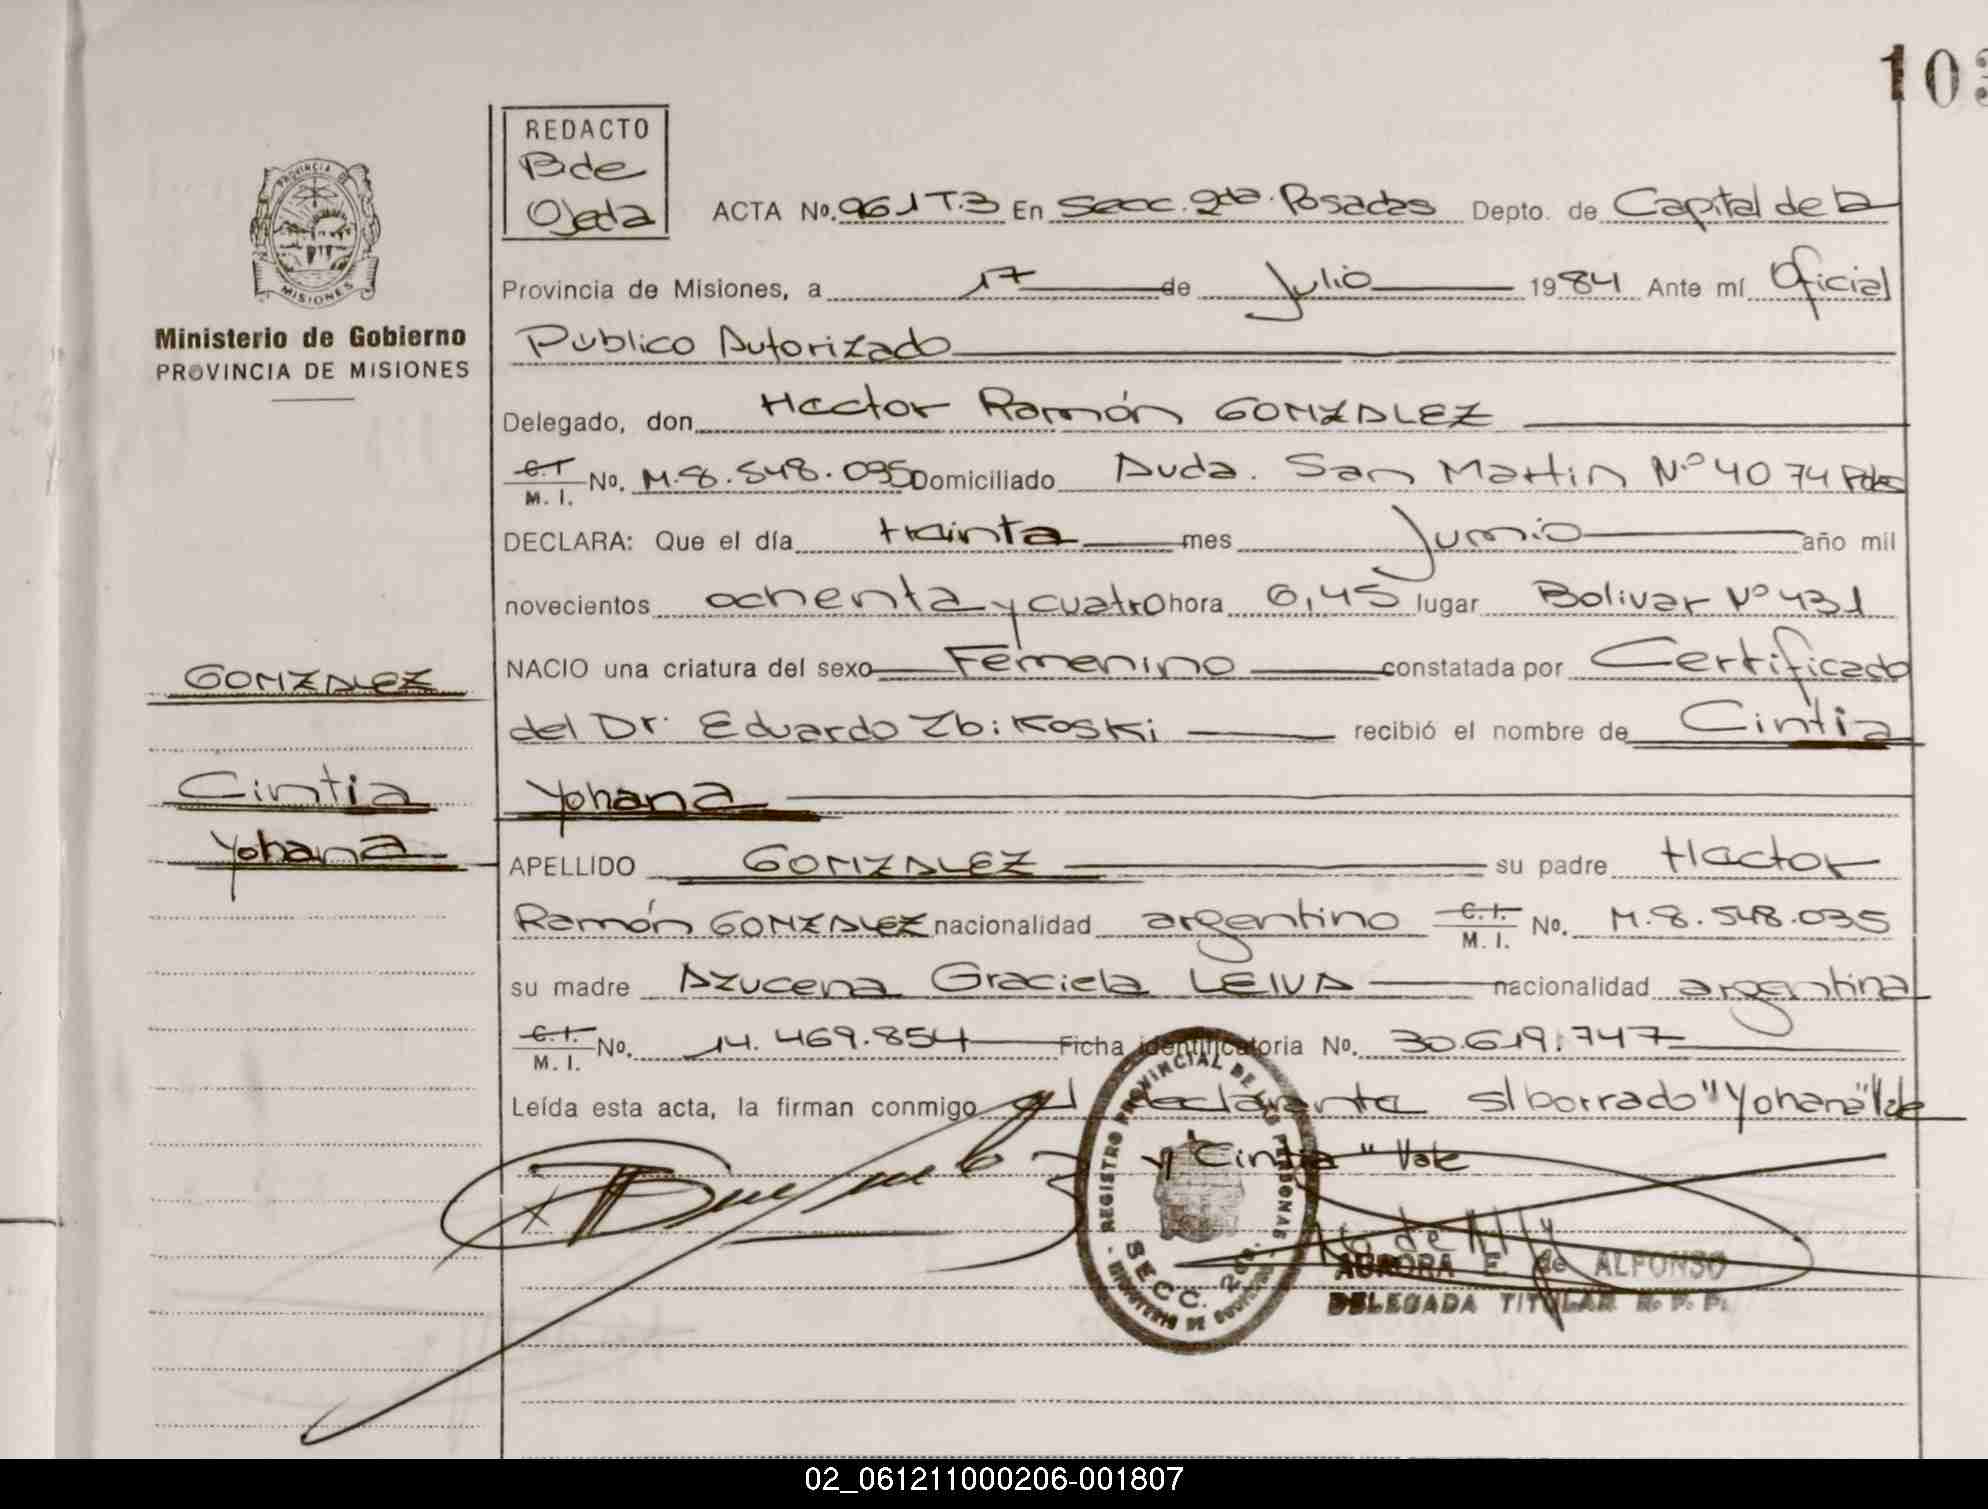 103
REDACTO
B de
Ojeda
PROVINCIA DE
MISIONES
Ministerio de Gobierno
PROVINCIA DE MISIONES
ACTA No. 961 T.3 En Secc. 2da. Posadas Depto. de Capital de la
Provincia de Misiones, a 17 de Julio 1984 Ante mí Oficial
Publico Autorizado
Delegado, don Hector Ramón GONZALEZ
C.I. M. I. No. M.8.548.035 Domiciliado Avda. San Martin Nº 4074 Pdas
DECLARA: Que el día treinta mes Junio año mil
novecientos ochenta y cuatro hora 6,45 lugar Bolivar Nº 431
NACIO una criatura del sexo Femenino constatada por Certificado
del Dr. Eduardo Zbikoski recibió el nombre de Cintia
Yohana
GONZALEZ
Cintia
Yohana
APELLIDO GONZALEZ su padre Hector
Ramón GONZALEZ nacionalidad argentino C.I. M. I. No. M.8.548.035
su madre Azucena Graciela LEIVA nacionalidad argentina
C.I. M. I. No. 14.469.854 Ficha identificatoria No. 30.619.747
Leída esta acta, la firman conmigo el declarante s/borrado "Yohana" Vale
y "Cintia" Vale
REGISTRO PROVINCIAL DE LAS PERSONAS
SECC. 2da.
MINISTERIO DE GOBIERNO
AURORA E. de ALFONSO
DELEGADA TITULAR R. P. P.
02_061211000206-001807